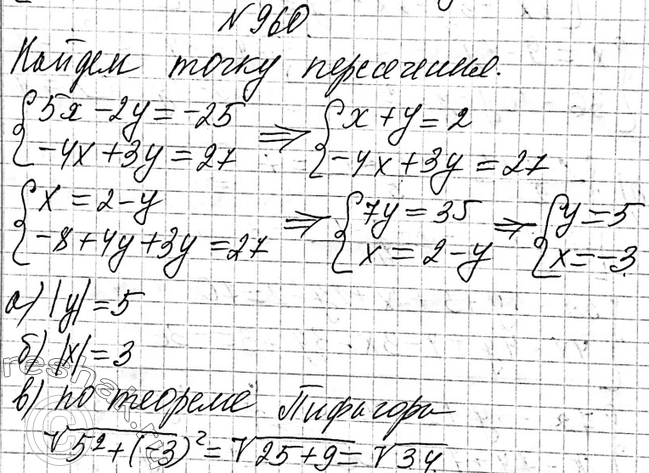 №960.
Найдем точку пересечения.
{5x - 2y = -25 ⇒ {x + y = 2
{-4x + 3y = 27 {-4x + 3y = 27
{x = 2 - y ⇒ {7y = 35 ⇒ {y = 5
{-8 + 4y + 3y = 27 {x = 2 - y {x = -3.
а) |y| = 5
б) |x| = 3
в) по теореме Пифагора
√5² + (-3)² = √25 + 9 = √34.